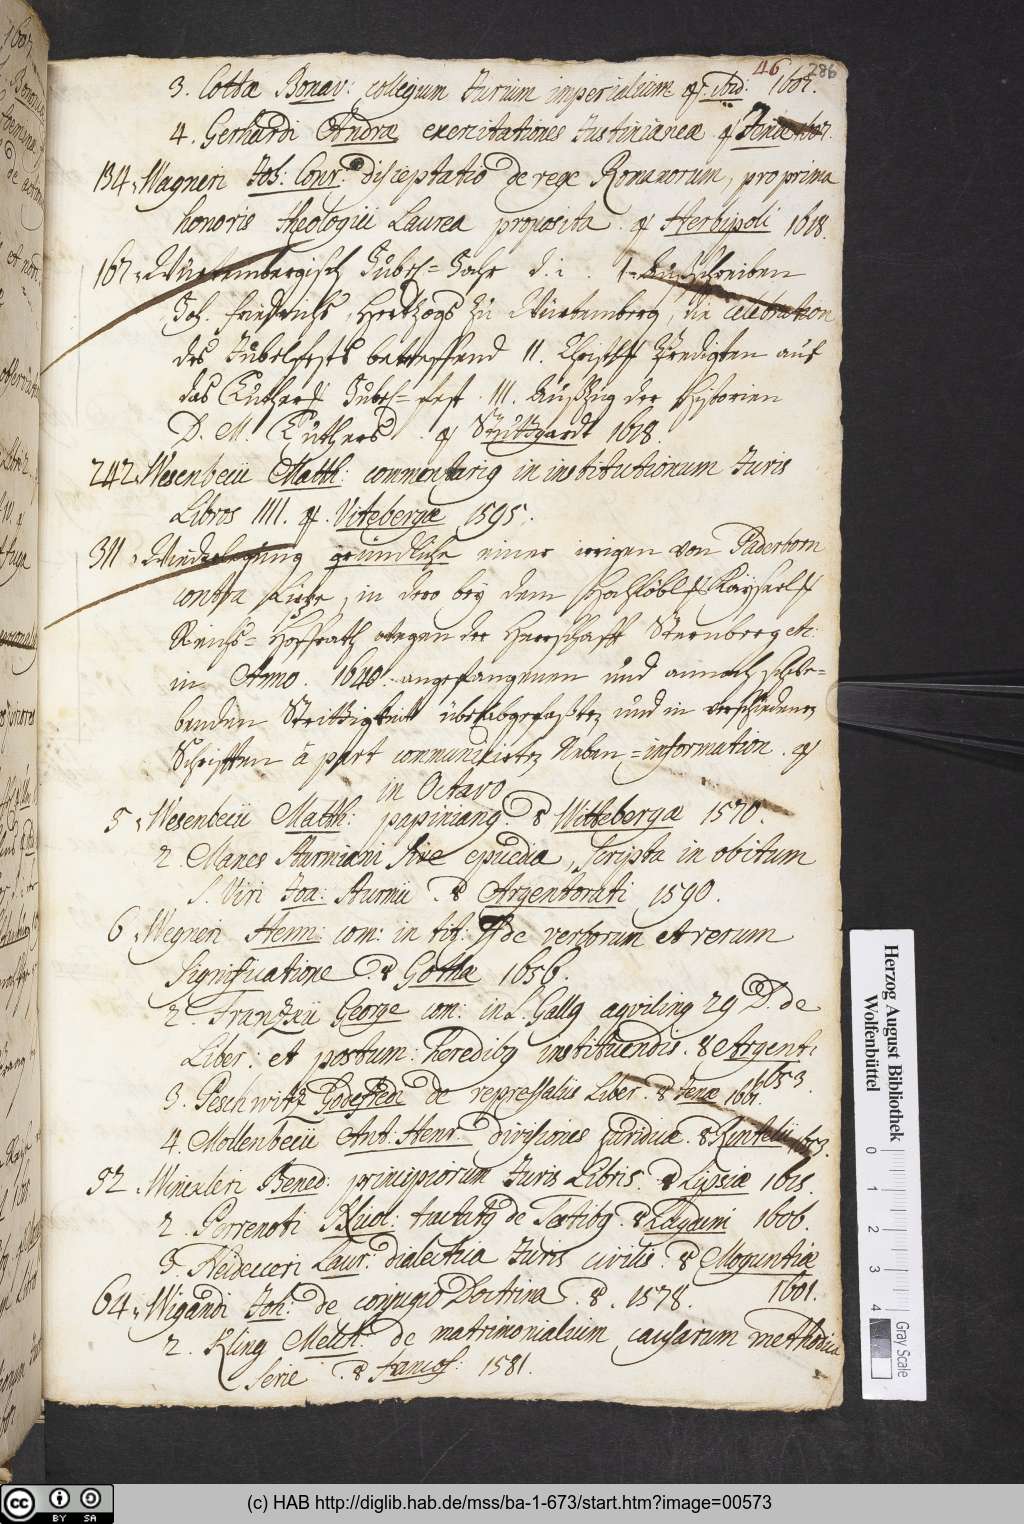 46 286
3. Cottæ Bonav: collegium Jurium imperialium 4. ibid: 1607.
4. Gerhardi Andræ exercitationes Justinianeæ 4 Jenæ
134, Wagneri Joh: Conr: disceptatio de rege Romanorum, pro prima
honoris theologici Laurea proposita. 4 Herbipoli 1618.
167, Würtembergisch Jubel=Jahr d. i. 1. Ausschreiben
Joh. Friedrichs, Hertzogs zu Würtemberg, die celebration
des Jubelfests betreffend II. Predigten auf
das Jubel=fest. III. Außzug der Historien
D. M. Luthers. 4 Stuttgardt 1618.
242, Wesenbecii Matth: commentarig in institutionum Juris
Libros IIII. 4. Vitebergæ 1595.
311, Wiederlegung gründliche einer irrigen von Paderborn
contra Lippe, in dero bey dem Hochlöbl. Kayserl.
Reichs=Hoffrath wegen der Herrschafft Sternberg etc.
in Anno. 1640. angefangenen und annoch schwe=
benden Streitigkeit übel abgefaßter und in verschiedenen
Schrifften à part communicirter Neben=information. 4
in Octavo
5, Wesenbecii Matth: papiniang. 8 Witteberga 1570.
2. Manes Sturmiani sive epicedia, scripta in obitum
S. Viri Joa: Sturmii. 8 Argentorati 1590.
6, Wegneri Henn: com: in tit: ff de verborum et rerum
significatione. 8 Gotha 1656.
2. Franzkii George com: in L. Gallg aqviling 29 D. de
Liber: et postum: heredibg instituendis. 8 Argent:
1653.
3. Peschwitz Godefredi de repressaliis Liber. 8 Jenæ 1661.
4. Mollenbecii Ant. Henr. divisiones juridicæ. 8 Rintelii 1653.
52, Winckleri Bened: principiorum Juris Libris. 8 Lipsiæ 1615.
2. Perrenoti tractatg de Testibg. 8 Lugduni 1606.
3. Neideceri Laur: dialectica Juris civilis. 8 Moguntiæ
1601.
64, Wigandi Joh: de conjugio Doctrina. 8. 1578.
2. Kling Melch: de matrimonialium causarum methodica
serie. 8 Francof: 1581.
Herzog August Bibliothek
Wolfenbüttel
0 1 2 3 4 Gray Scale
(c) HAB http://diglib.hab.de/mss/ba-1-673/start.htm?image=00573
CC BY SA